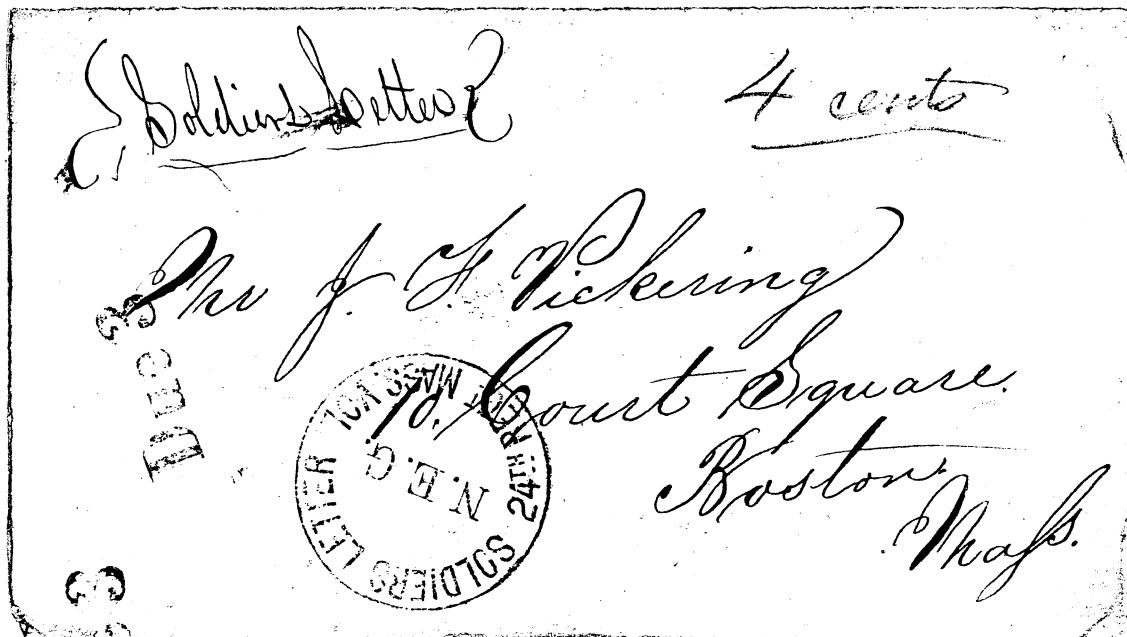 Soldiers Letter
4 cents
Mr J. F. Pickering
10. Court Square.
Boston.
Mass.
Due 3
SOLDIERS LETTER 24TH REGT MASS. VOL.
N.E.G.
3